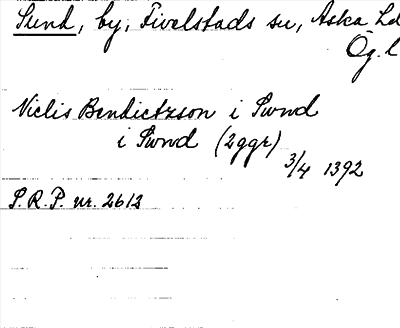 Sund, by, Fivelstads sn, Aska hd
Ög. l
Niclis Bendictzson i Swnd
i Swnd (2ggr)
3/4 1392
S.R.P. nr. 2612